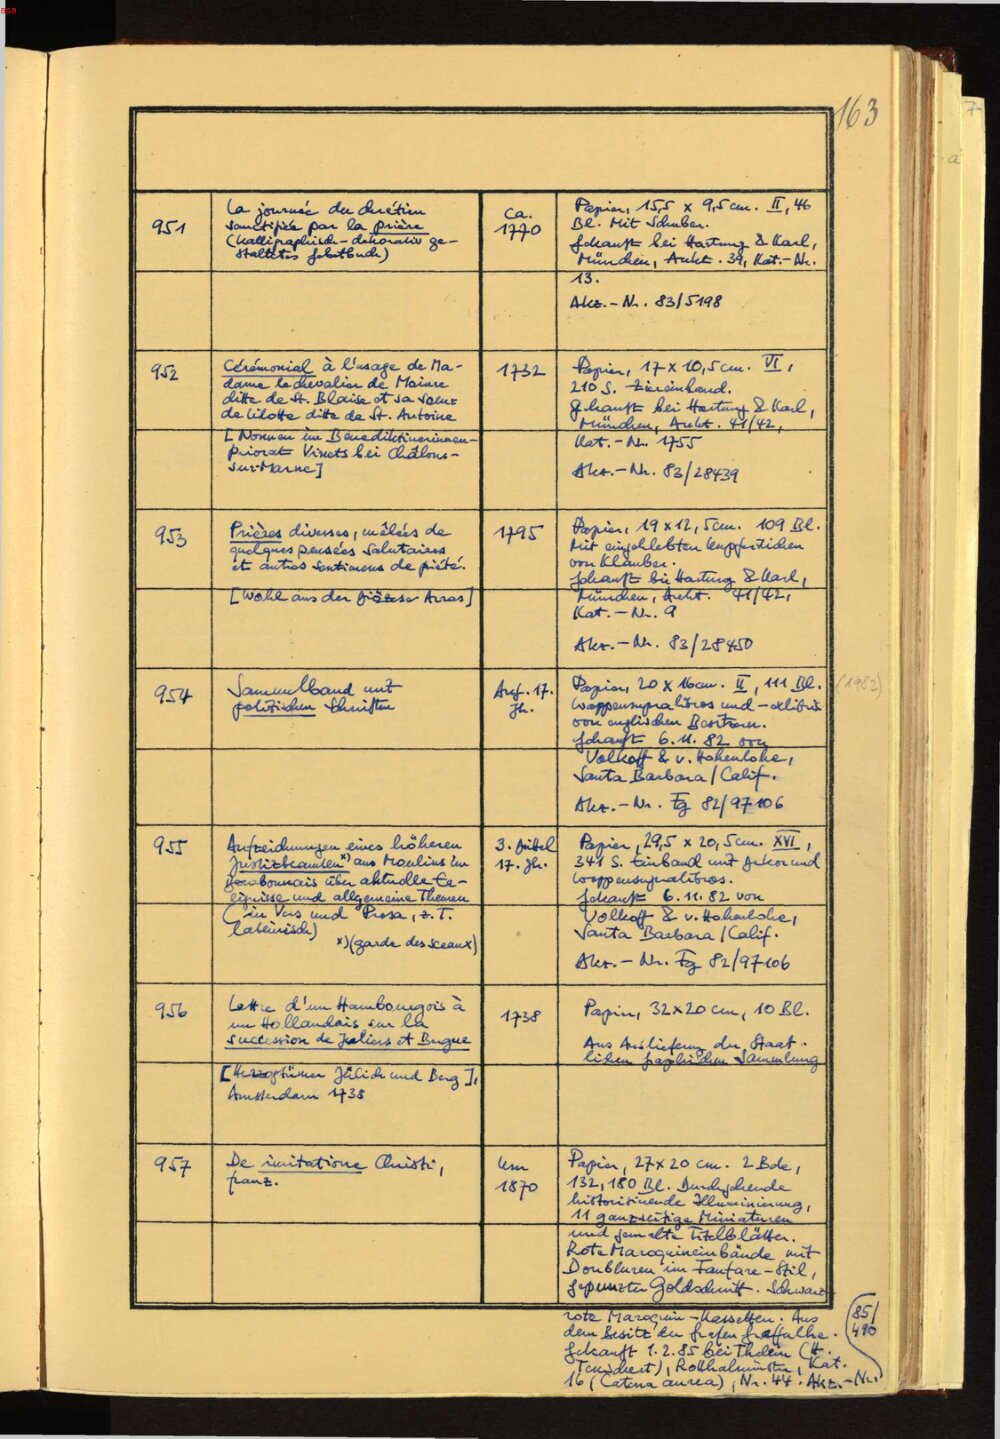 BSB
163
951
La journée du chrétien
sanctifiée par la prière
(kalligraphisch-dekorativ ge-
staltetes Gebetbuch)
ca.
1770
Papier, 15,5 x 9,5 cm. II, 46
Bl. Mit Schuber.
Gekauft bei Hartung & Karl,
München, Aukt. 39, Kat.-Nr.
13.
Akz.-Nr. 83/5198
952
Cérémonial à l'usage de Ma-
dame la chevalier de
ditte de St. Blaise et sa sœur
de ditte de St. Antoine
[Nonnen im Benediktinerinnen-
priorat Vinets bei Châlons-
sur-Marne]
1732
Papier, 17 x 10,5 cm. VI,
210 S. Ziereinband.
Gekauft bei Hartung & Karl,
München, Aukt. 41/42,
Kat.-Nr. 1755
Akz.-Nr. 83/28439
953
Prières diverses, mêlées de
quelques pensées salutaires
et autres sentimens de piété.
[Wohl aus der Diözese Arras]
1795
Papier, 19 x 12,5 cm. 109 Bl.
Mit eingeklebten Kupferstichen
von Klauber.
Gekauft bei Hartung & Karl,
München, Aukt. 41/42,
Kat.-Nr. 9
Akz.-Nr. 83/28450
954
Sammelband mit
politischen Schriften
Anf. 17.
Jh.
Papier, 20 x 16 cm. II, 111 Bl.
Wappensupralibros und -exlibris
von englischen Besitzern.
Gekauft 6.11.82 von
Volkoff & v. Hohenlohe,
Santa Barbara/Calif.
Akz.-Nr. Fg 82/97106
(1982)
955
Aufzeichnungen eines höheren
Justizbeamten x) aus Moulins im
Bourbonnais über aktuelle Er-
eignisse und allgemeine Themen
(in Vers und Prosa, z.T.
lateinisch)
x) (garde des sceaux)
3. Drittel
17. Jh.
Papier, 29,5 x 20,5 cm. XVI,
341 S. Einband mit Dekor und
Wappensupralibros.
Gekauft 6.11.82 von
Volkoff & v. Hohenlohe,
Santa Barbara/Calif.
Akz.-Nr. Fg 82/97106
956
Lettre d'un Hambourgois à
un Hollandais sur la
succession de Juliers et Bergue
[Herzogtümer Jülich und Berg],
Amsterdam 1738
1738
Papier, 32 x 20 cm, 10 Bl.
Aus Auslieferung der Staat-
lichen graphischen Sammlung
957
De imitatione Christi,
franz.
um
1870
Papier, 27 x 20 cm. 2 Bde,
132, 180 Bl. Durchgehende
historisierende Illuminierung,
11 ganzseitige Miniaturen
und gemalte Titelblätter.
Rote Maroquineinbände mit
Doubluren im Fanfare-Stil,
gepunzter Goldschnitt. Schwarz-
rote Maroquin-Kassetten. Aus
dem Besitz der Grafen Greffulhe.
Gekauft 1.2.85 bei Thelem (H.
Tenschert), Rotthalmünster, Kat.
16 (Catena aurea), Nr. 44. Akz.-Nr.
85/
490